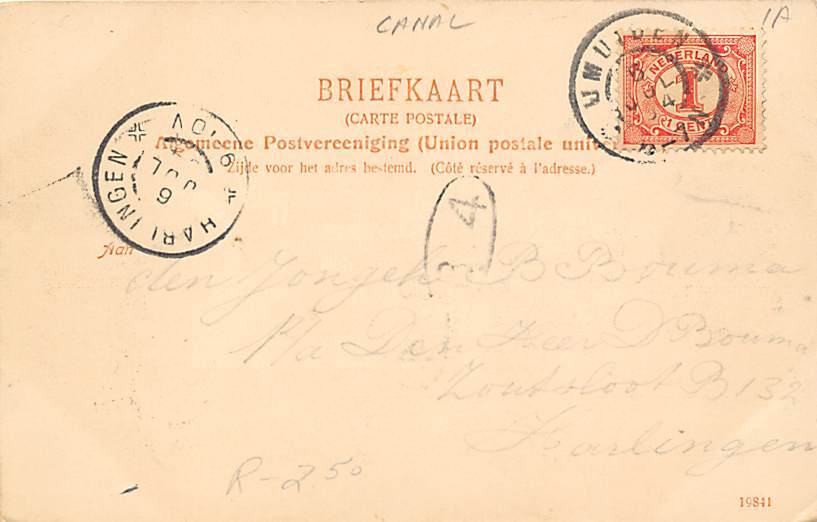 CANAL
1A
IJMUIDEN
NEDERLAND
1
CENT
BRIEFKAART
(CARTE POSTALE)
Algemeene Postvereeniging (Union postale univer
Zijde voor het adres bestemd. (Côté réservé à l'adresse.)
HARLINGEN HARLINGEN
4
Aan
den Jongeh B Bouma
p/a Den Heer D Bouma
Zoutsloot B 132
Harlingen
R-2 50
19841